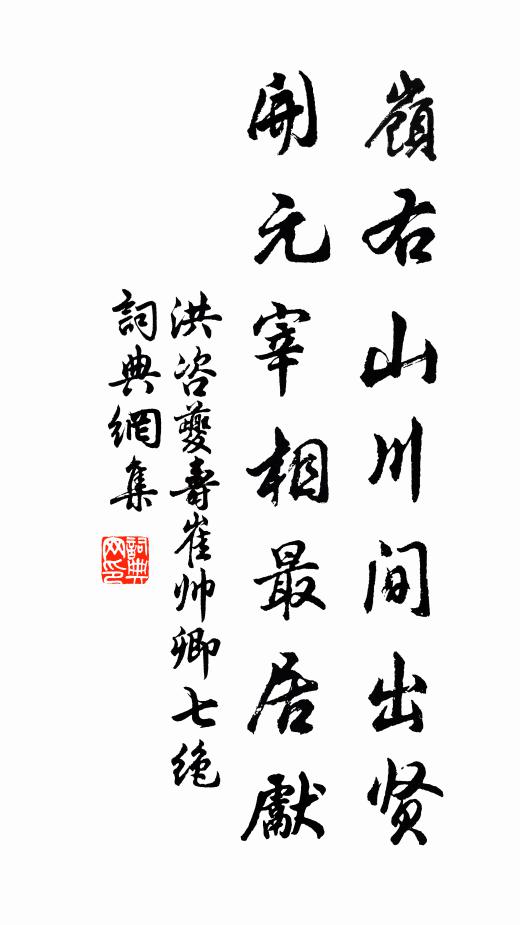 嶺右山川间出贤
開元宰相最居獻
洪咨夔壽崔帅卿七绝
詞典網集
詞典
网印